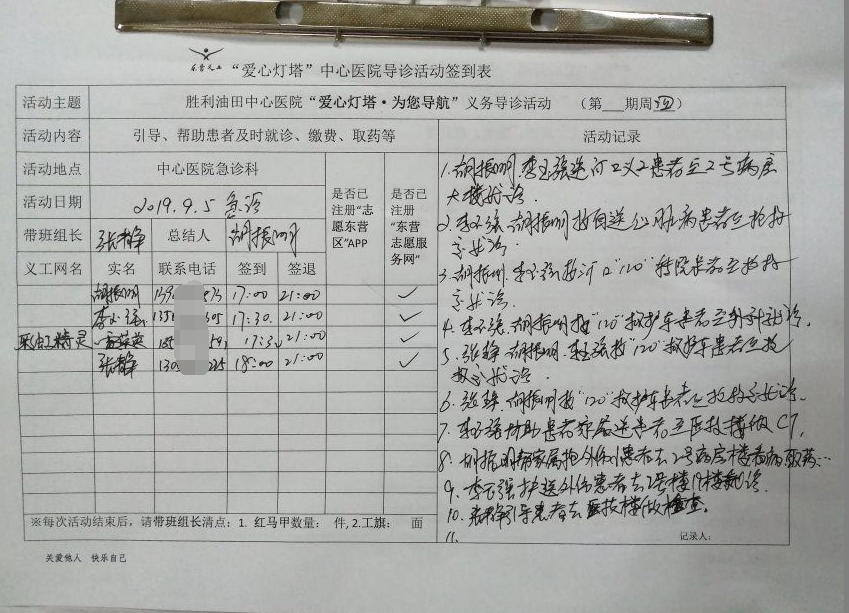 东营义工 “爱心灯塔”中心医院导诊活动签到表
活动主题 胜利油田中心医院“爱心灯塔·为您导航”义务导诊活动 （第 期周四）
活动内容 引导、帮助患者及时就诊、缴费、取药等 活动记录
活动地点 中心医院急诊科
活动日期 2019.9.5 急诊
带班组长 张静 总结人 胡振明
是否已注册“志愿东营区”APP
是否已注册“东营志愿服务网”
义工网名 实名 联系电话 签到 签退
胡振明 17:00 21:00 ✓
李玉强 17:30 21:00 ✓
彩虹精灵 17:30 21:00 ✓
张静 18:00 21:00 ✓
1、胡振明、李玉强送 患者至2号病房
大楼就诊.
2、李玉强、胡振明 送心脏病患者至抢救
室就诊.
3、胡振明、李玉强接 口“120”转院患者至抢救
室就诊.
4、李玉强、胡振明接“120”救护车患者至外科就诊.
5、张静、胡振明、李玉强接“120”救护车患者至抢
救室就诊.
6、张静、胡振明接“120”救护车患者至抢救室就诊.
7、李玉强协助患者家属送患者至医技楼做CT.
8、胡振明帮家属 外伤患者去2号病房楼看病取药…
9、李玉强护送外伤患者去2号楼 就诊.
10、张静引导患者去医技楼做检查.
11、
※每次活动结束后，请带班组长清点：1. 红马甲数量： 件, 2.工旗： 面
记录人：
关爱他人 快乐自己